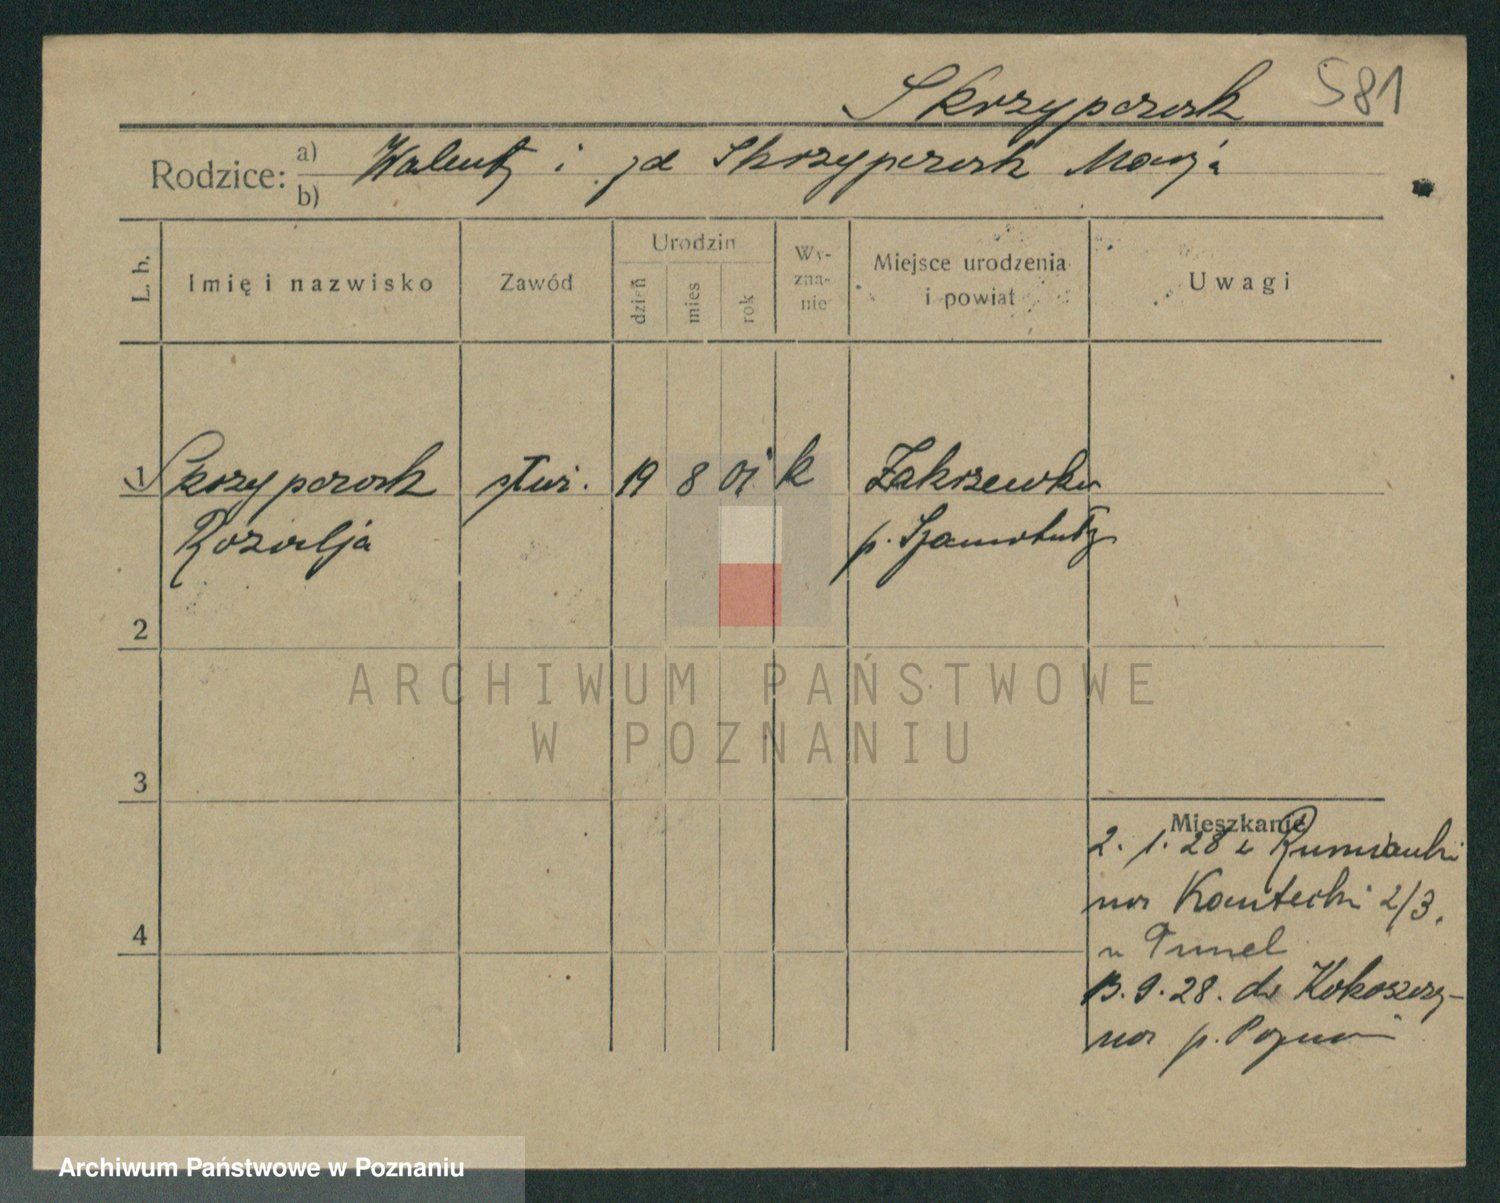 Skrzypczak 581
Rodzice: a) Walenty i zd Skrzypczak Marja
b)
L. b. Imię i nazwisko Zawód Urodzin dzień mies rok Wyzna-nie Miejsce urodzenia i powiat Uwagi
1 Skrzypczak służ. 19 8 01 k Zakrzewko
Rozalja p. Szamotuły
2
3
4
Mieszkanie
2. 1. 28 z
na Kantecki 2/3.
u Tunel
13. 9. 28. do Kokoszczy-
na p. Poznań
ARCHIWUM PAŃSTWOWE
W POZNANIU
Archiwum Państwowe w Poznaniu